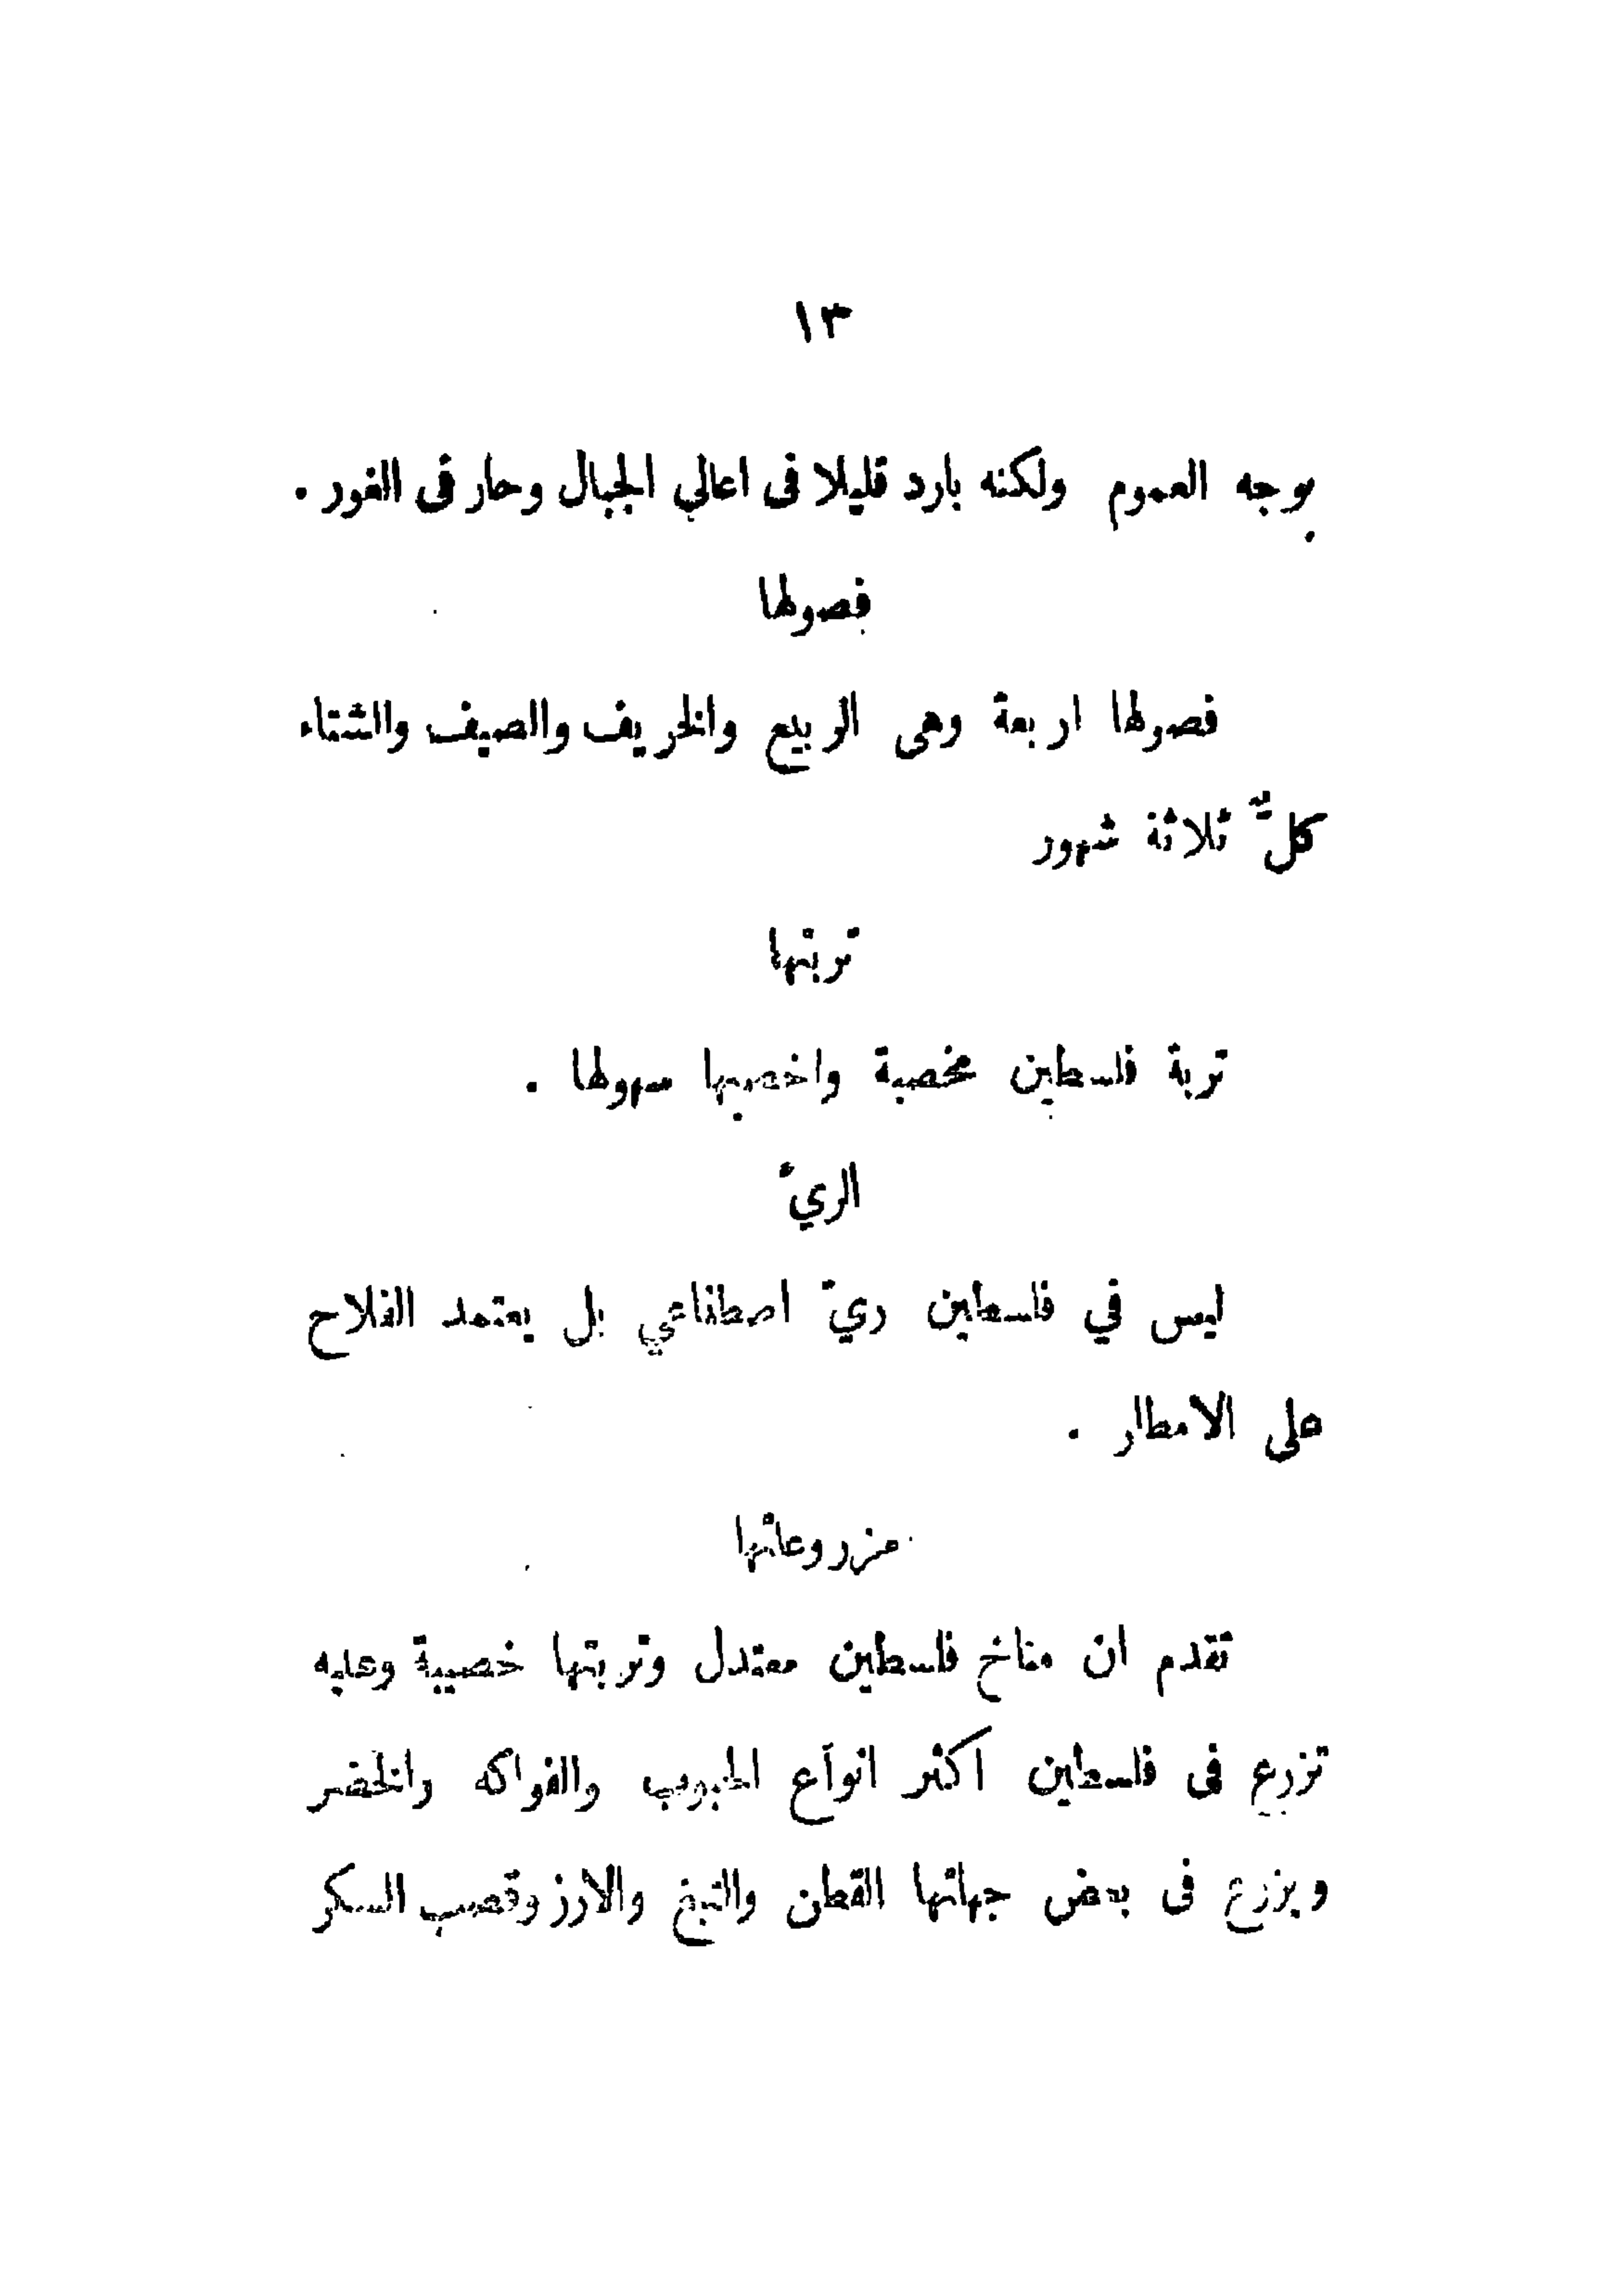 ١٣
بوجه العموم ولكنه بارد قليلا فى اعالي الجبال وحار فى الغور .
فصولها
فصولها اربعة وهى الربيع والخريف والصيف والشتاء
كلٌّ ثلاثة شهور
تربتها
تربة فلسطين مخصبة واخصبها سهولها .
الريّ
ليس في فلسطين ريّ اصطناعي بل يعتمد الفلاح
على الامطار .
مزروعاتها
تقدم ان مناخ فلسطين معتدل وتربتها خصيبة وعليه
تزرع فى فلسطين اكثر انواع الحبوب والفواكه والخضر
ويزرع فى بعض جهاتها القطن والتبغ والارز وقصب السكر